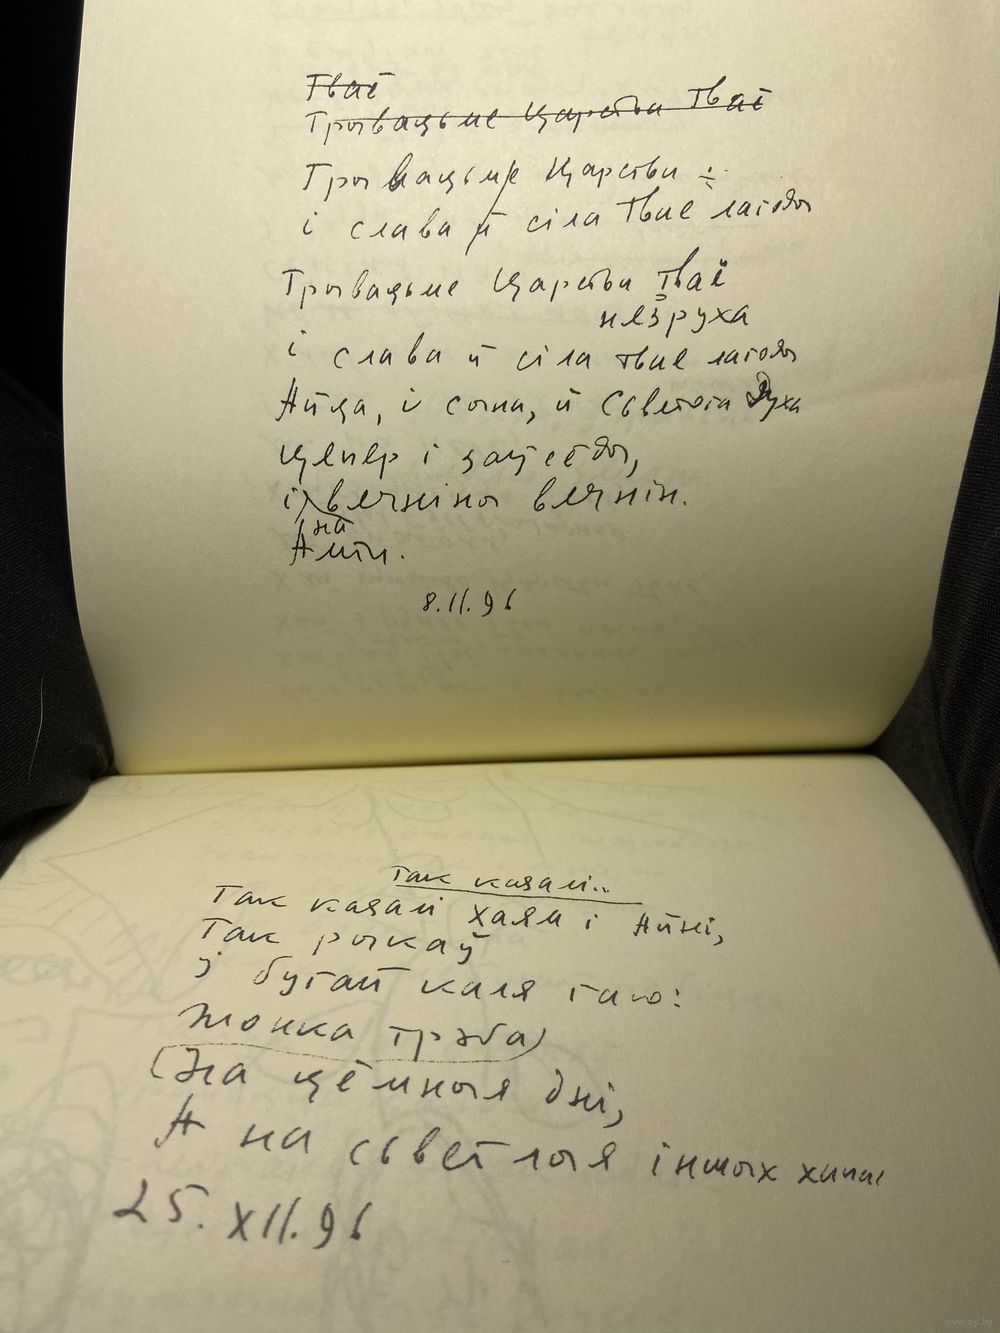 Тваё
Трывацьме Царства Тваё
Трывацьме Царства
і слава й сіла Твае лагоды
Трывацьме Царства Тваё
незруха
і слава й сіла твае лагоды
Айца, і сына, й Сьвятога Духа
цяпер і заўсёды,
і вечніны вечнін.
на
Амін.
8.11.96
Так казалі..
Так казалі Хаям і Айні,
Так рыкаў
і бугай каля гаю:
Жонка трэба
(На цёмныя дні,
А на сьветлыя іншых хапае
25.XII.96
www.ay.by